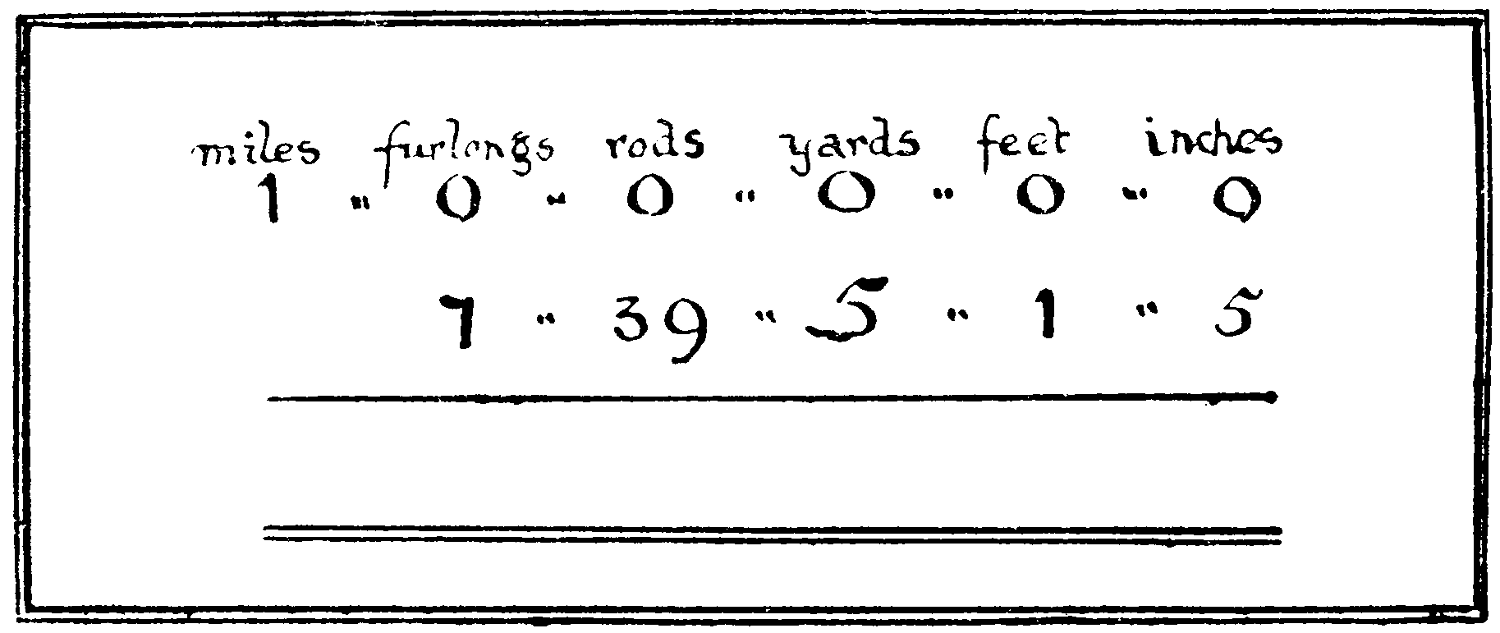 miles furlongs rods yards feet inches
1 " 0 " 0 " 0 " 0 " 0
7 " 39 " 5 " 1 " 5